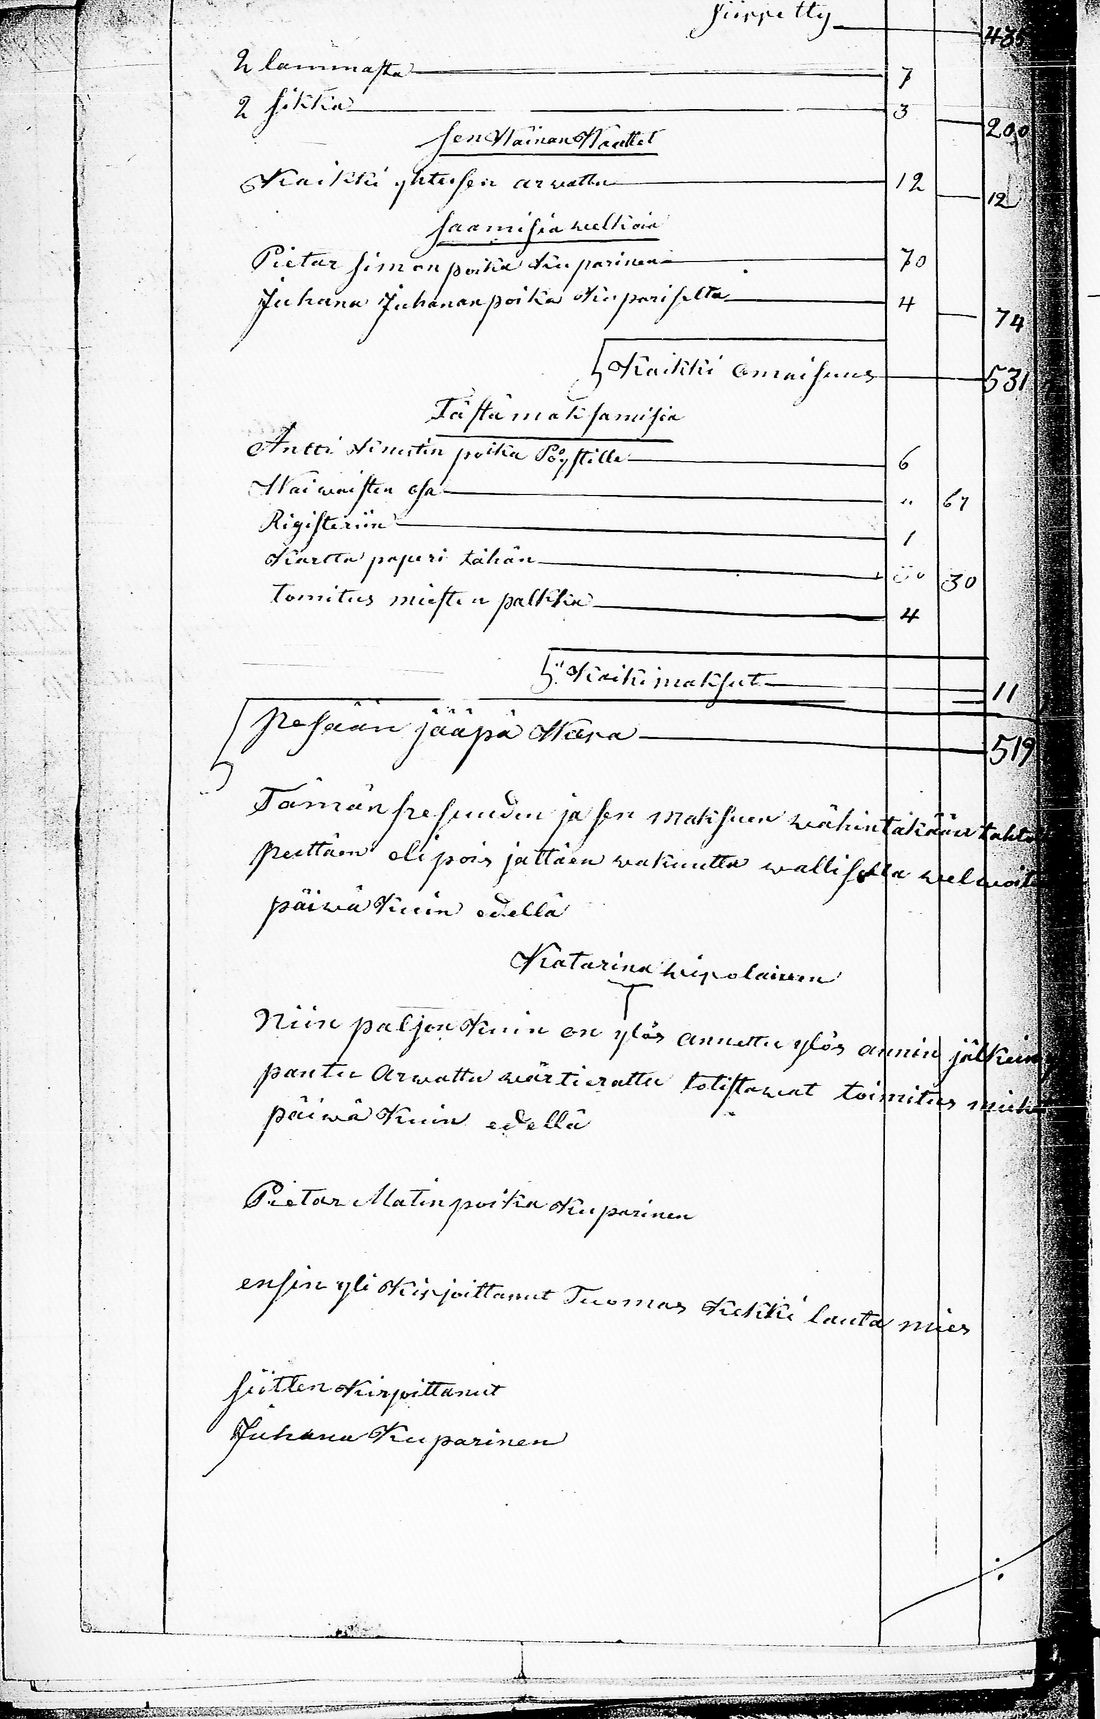 Siirretty 435
2 lammasta 7
2 sikkia 3 200
sen Wainan Waattet
Kaikki yhteisen arwattu 12 12
saamisia welkoia
Pietar Simon poika Kuparinen 70
Juhana Juhanan poika Kupariselta 4 74
Kaikki omaisuus 531
Tästä maksamisia
Antti Knutin poika Pöystille 6
Waiwaisten osa " 67
Rigisteriin 1
Kartta paperi tähän 30
toimitus miesten palkkia 4
Kaiki maksut 11
pesään jääpä Wara 519
Tämän pesuuden ja sen maksuen wähintäkään tahto
peittäen eli pois jättäen wakuutta wallisella welwoit
päiwä Kuin edellä
Katarina
Niin paljon Kuin on ylös annettu ylös annin jälkein
pantu Arwattu wärtierattu totistawat toimitus mieh
päiwä Kuin edellä
Pietar Matin poika Kuparinen
ensin yli Kirjoittanut Tuomas Kekki lauta mies
sütten Kirjoittanut
Juhana Kuparinen